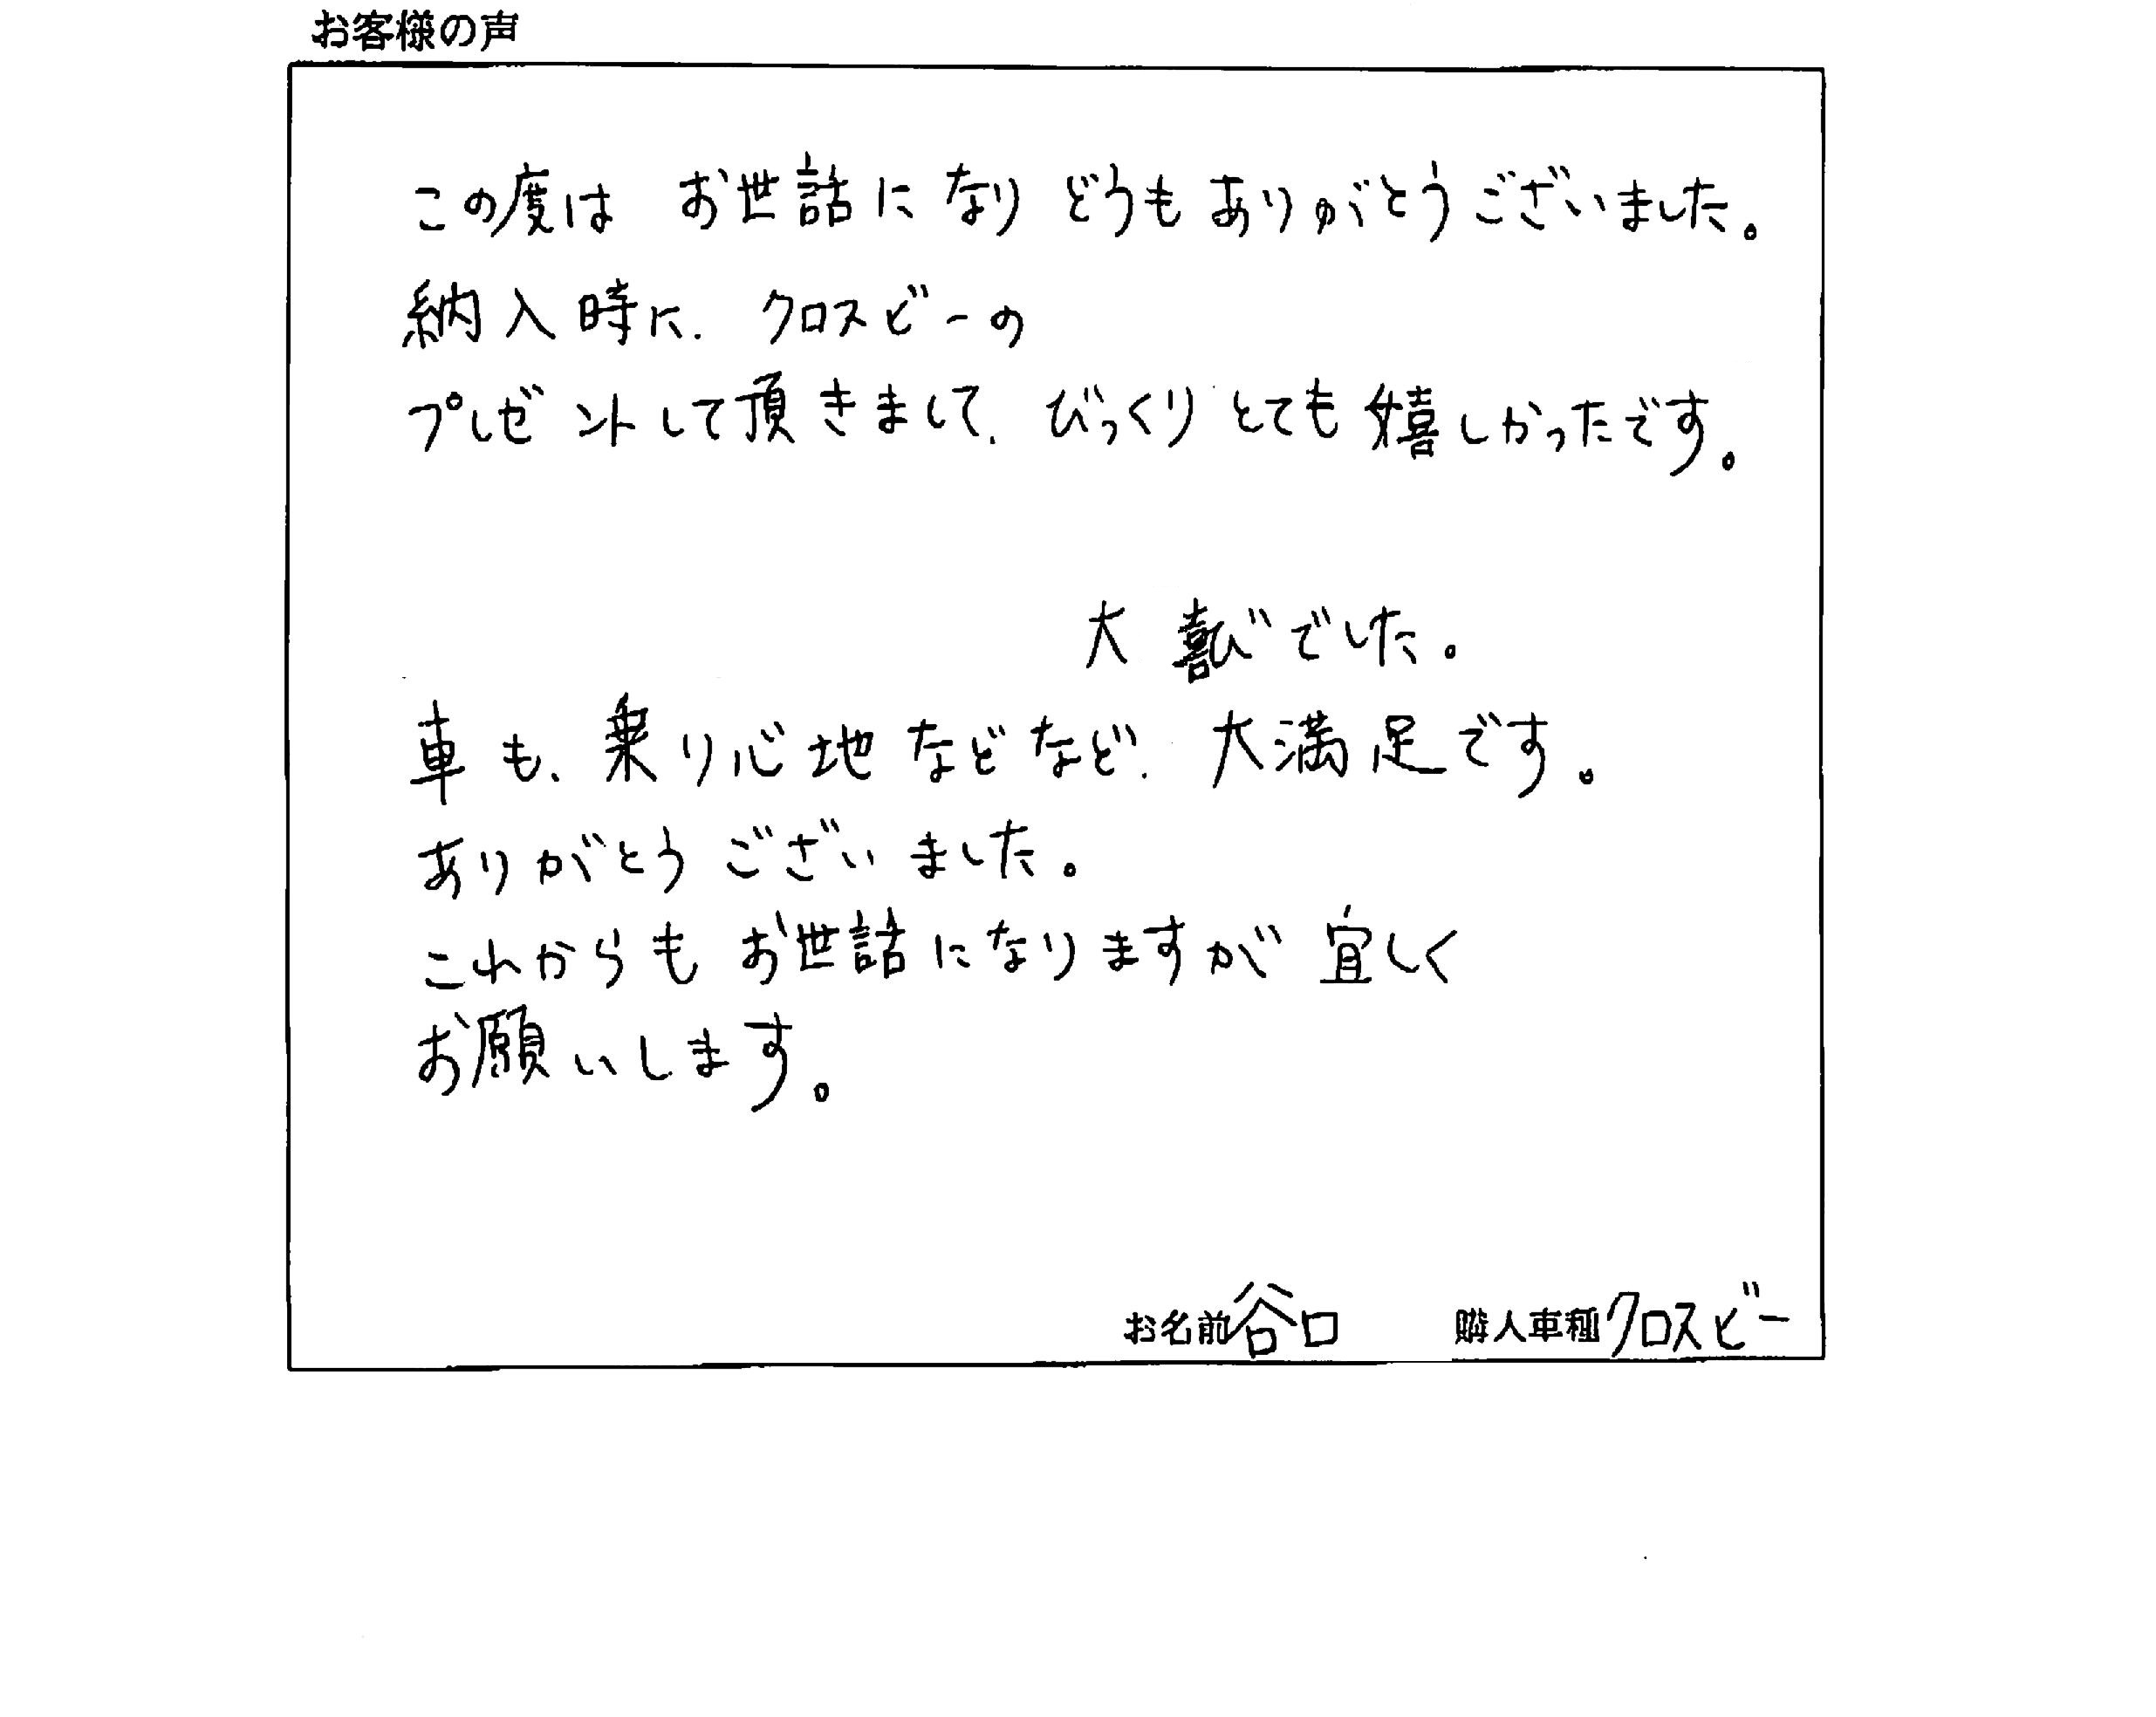 お客様の声
この度は お世話になり どうもありがとうございました。
納入時に、クロスビーの
プレゼントして頂きまして、びっくり とても嬉しかったです。
大喜びでした。
車も、乗り心地などなど、大満足です。
ありがとうございました。
これからも お世話になりますが 宜しく
お願いします。
お名前 谷口 購入車種 クロスビー